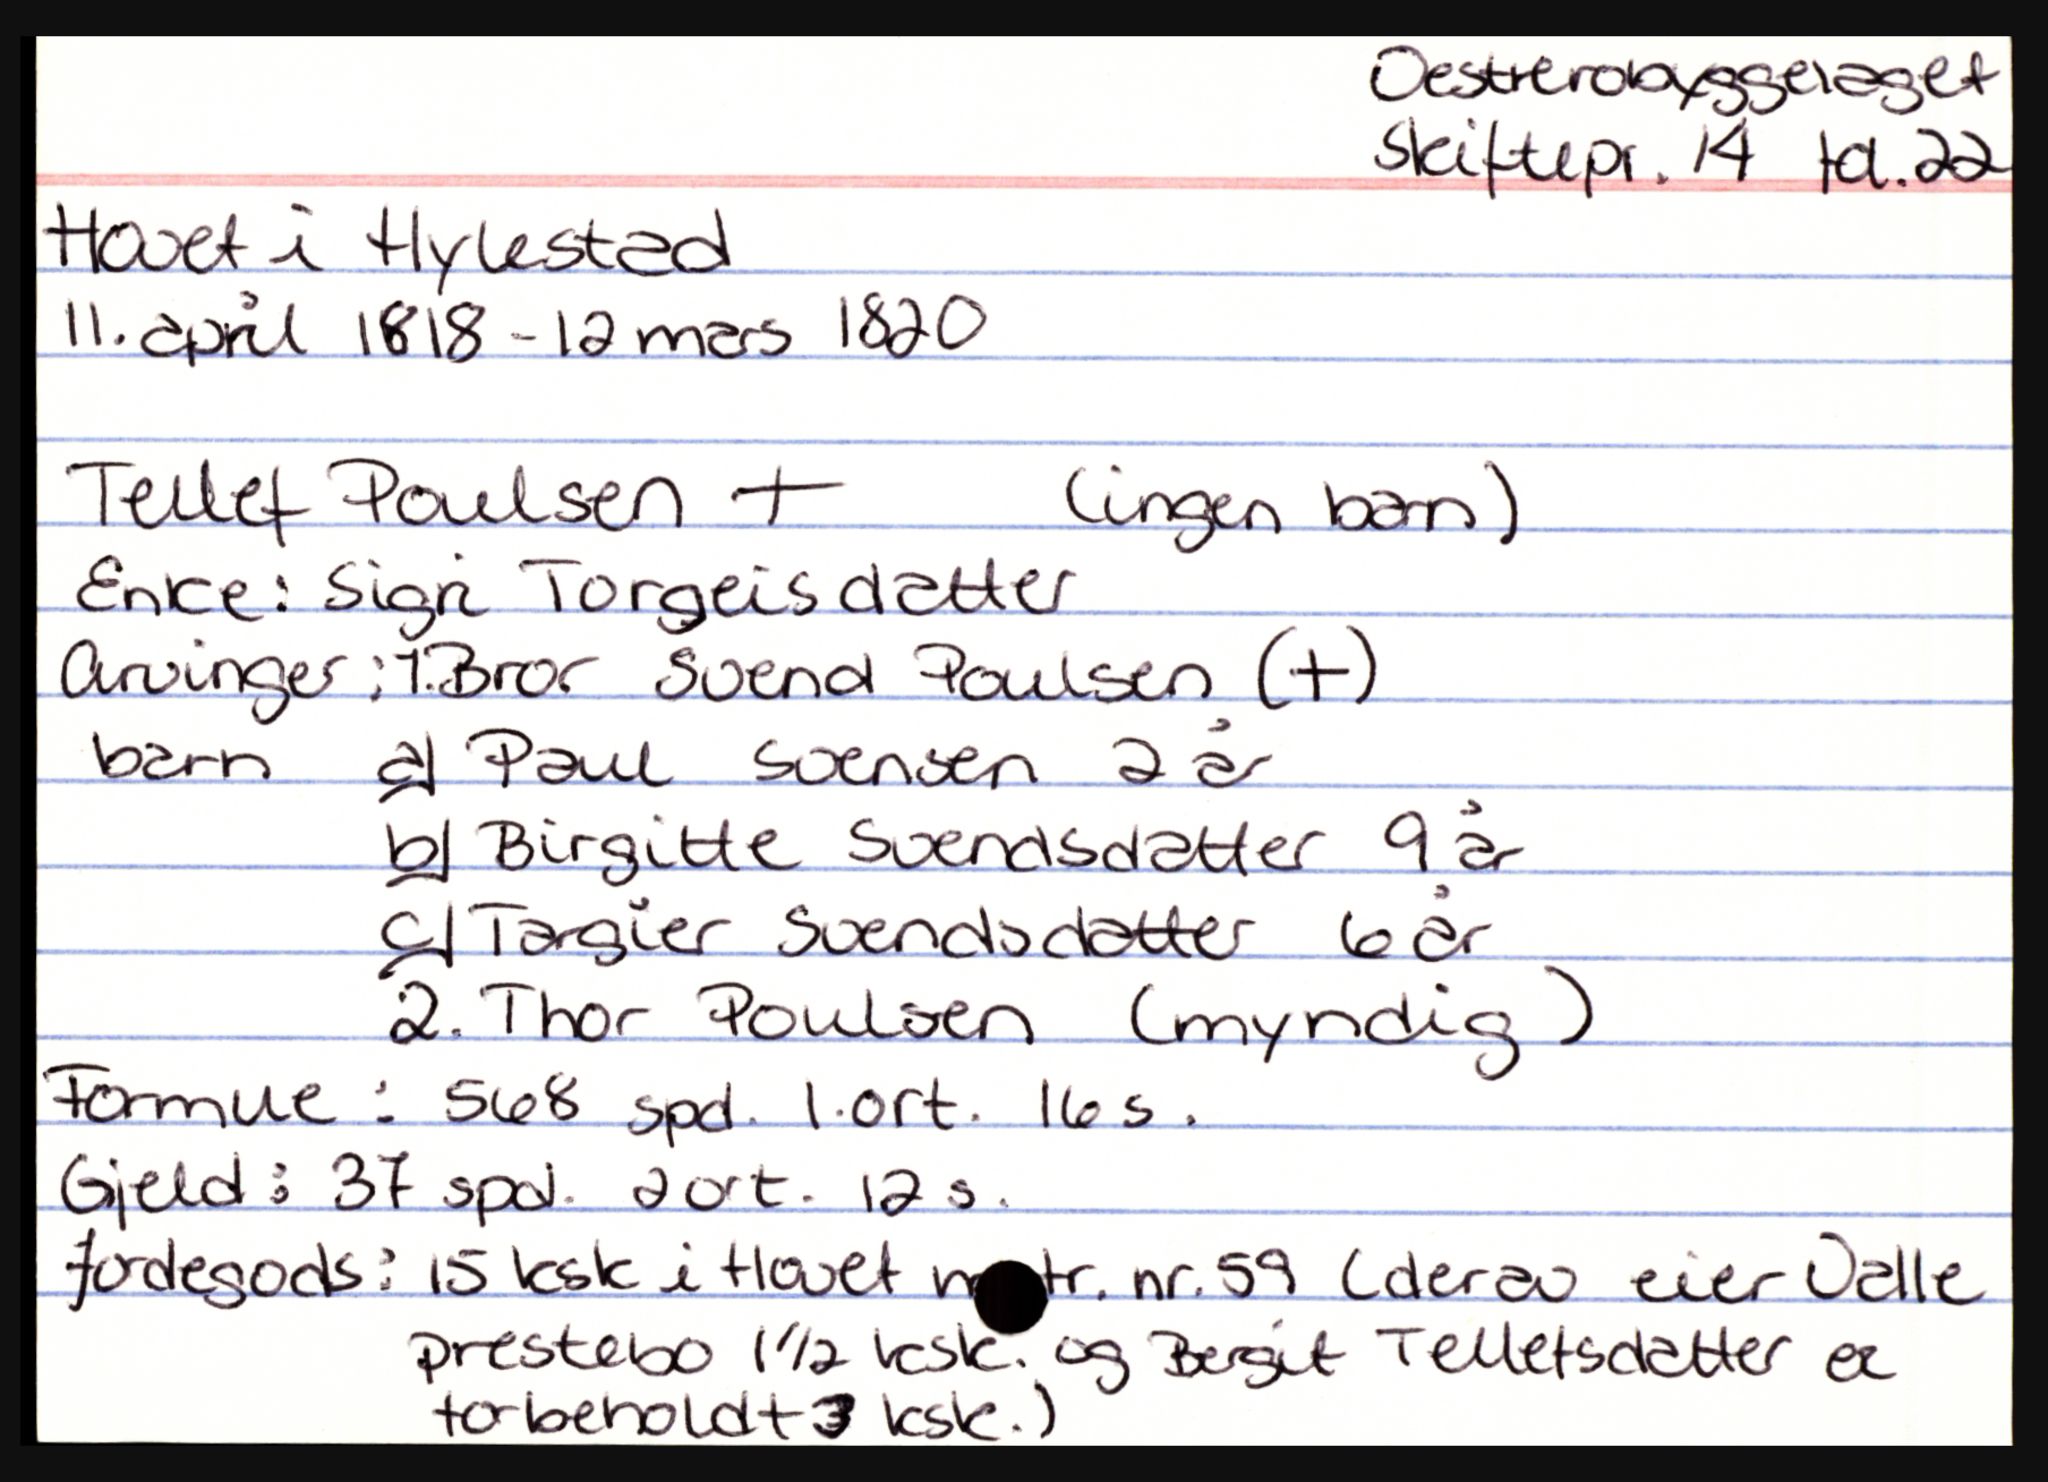 Oestrerobyggelaget
Skiftepr. 14 fol. 22
Hovet i Hylestad
11. april 1818 - 12 mars 1820
Tellef Poulsen + (ingen barn)
Enke: Sigri Torgeisdatter
Arvinger: 1. Bror Svend Poulsen (+)
barn a) Paul Svensen 2 år
b) Birgitte Svendsdatter 9 år
c) Targier Svendsdatter 6 år
2. Thor Poulsen (myndig)
Formue: 568 spd. 1. ort. 16 s.
Gjeld: 37 spd. 2 ort. 12 s.
Jordegods: 15 ksk i Hovet matr. nr. 59 (derav eier Valle
prestebo 1 1/2 ksk. og Bergit Tellefsdatter er
forbeholdt 3 ksk.)